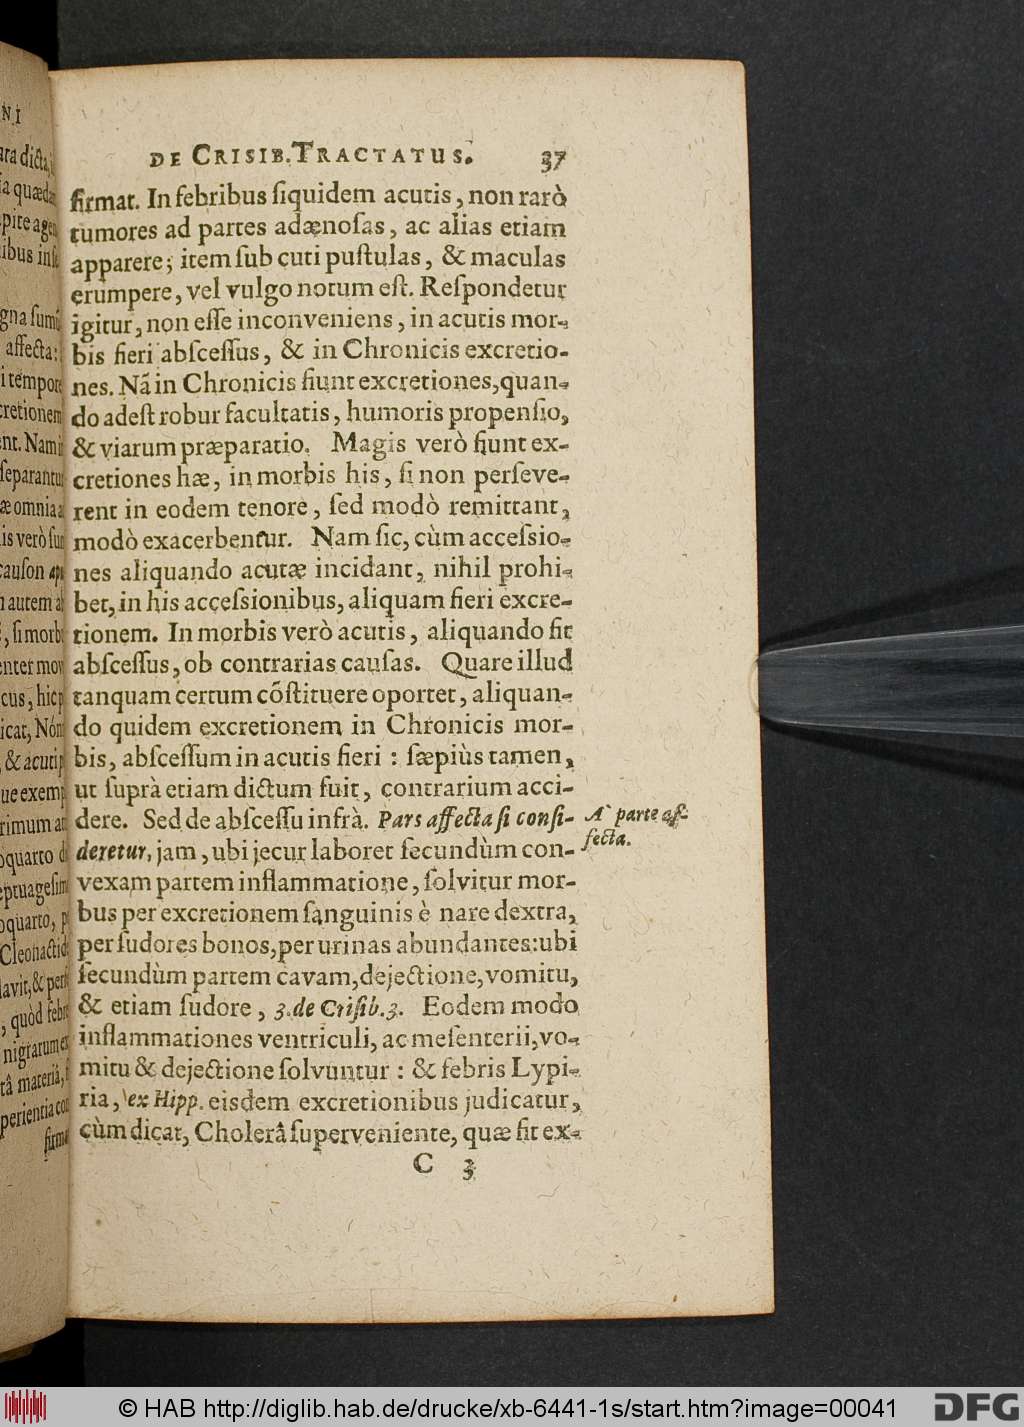 DE CRISIB. TRACTATUS. 37
firmat. In febribus ſiquidem acutis, non rarò
tumores ad partes adænoſas, ac alias etiam
apparere; item ſub cuti puſtulas, & maculas
erumpere, vel vulgo notum eſt. Reſpondetur
igitur, non eſſe inconveniens, in acutis mor-
bis fieri abſceſſus, & in Chronicis excretio-
nes. Nã in Chronicis fiunt excretiones, quan-
do adeſt robur facultatis, humoris propenſio,
& viarum præparatio. Magis verò fiunt ex-
cretiones hæ, in morbis his, ſi non perſeve-
rent in eodem tenore, ſed modò remittant,
modò exacerbentur. Nam ſic, cùm acceſsio-
nes aliquando acutæ incidant, nihil prohi-
bet, in his acceſsionibus, aliquam fieri excre-
tionem. In morbis verò acutis, aliquando fit
abſceſſus, ob contrarias cauſas. Quare illud
tanquam certum cõſtituere oportet, aliquan-
do quidem excretionem in Chronicis mor-
bis, abſceſſum in acutis fieri : ſæpiùs tamen,
ut ſuprà etiam dictum fuit, contrarium acci-
dere. Sed de abſceſſu infrà. Pars affecta ſi conſi-
deretur, jam, ubi jecur laboret ſecundùm con-
vexam partem inflammatione, ſolvitur mor-
bus per excretionem ſanguinis è nare dextra,
per ſudores bonos, per urinas abundantes: ubi
ſecundùm partem cavam, dejectione, vomitu,
& etiam ſudore, 3. de Criſib. 3. Eodem modo
inflammationes ventriculi, ac meſenterii, vo-
mitu & dejectione ſolvuntur : & febris Lypi-
ria, ex Hipp. eisdem excretionibus judicatur,
cùm dicat, Cholerâ ſuperveniente, quæ fit ex-
C 3
A` parte af-
fecta.
© HAB http://diglib.hab.de/drucke/xb-6441-1s/start.htm?image=00041
DFG